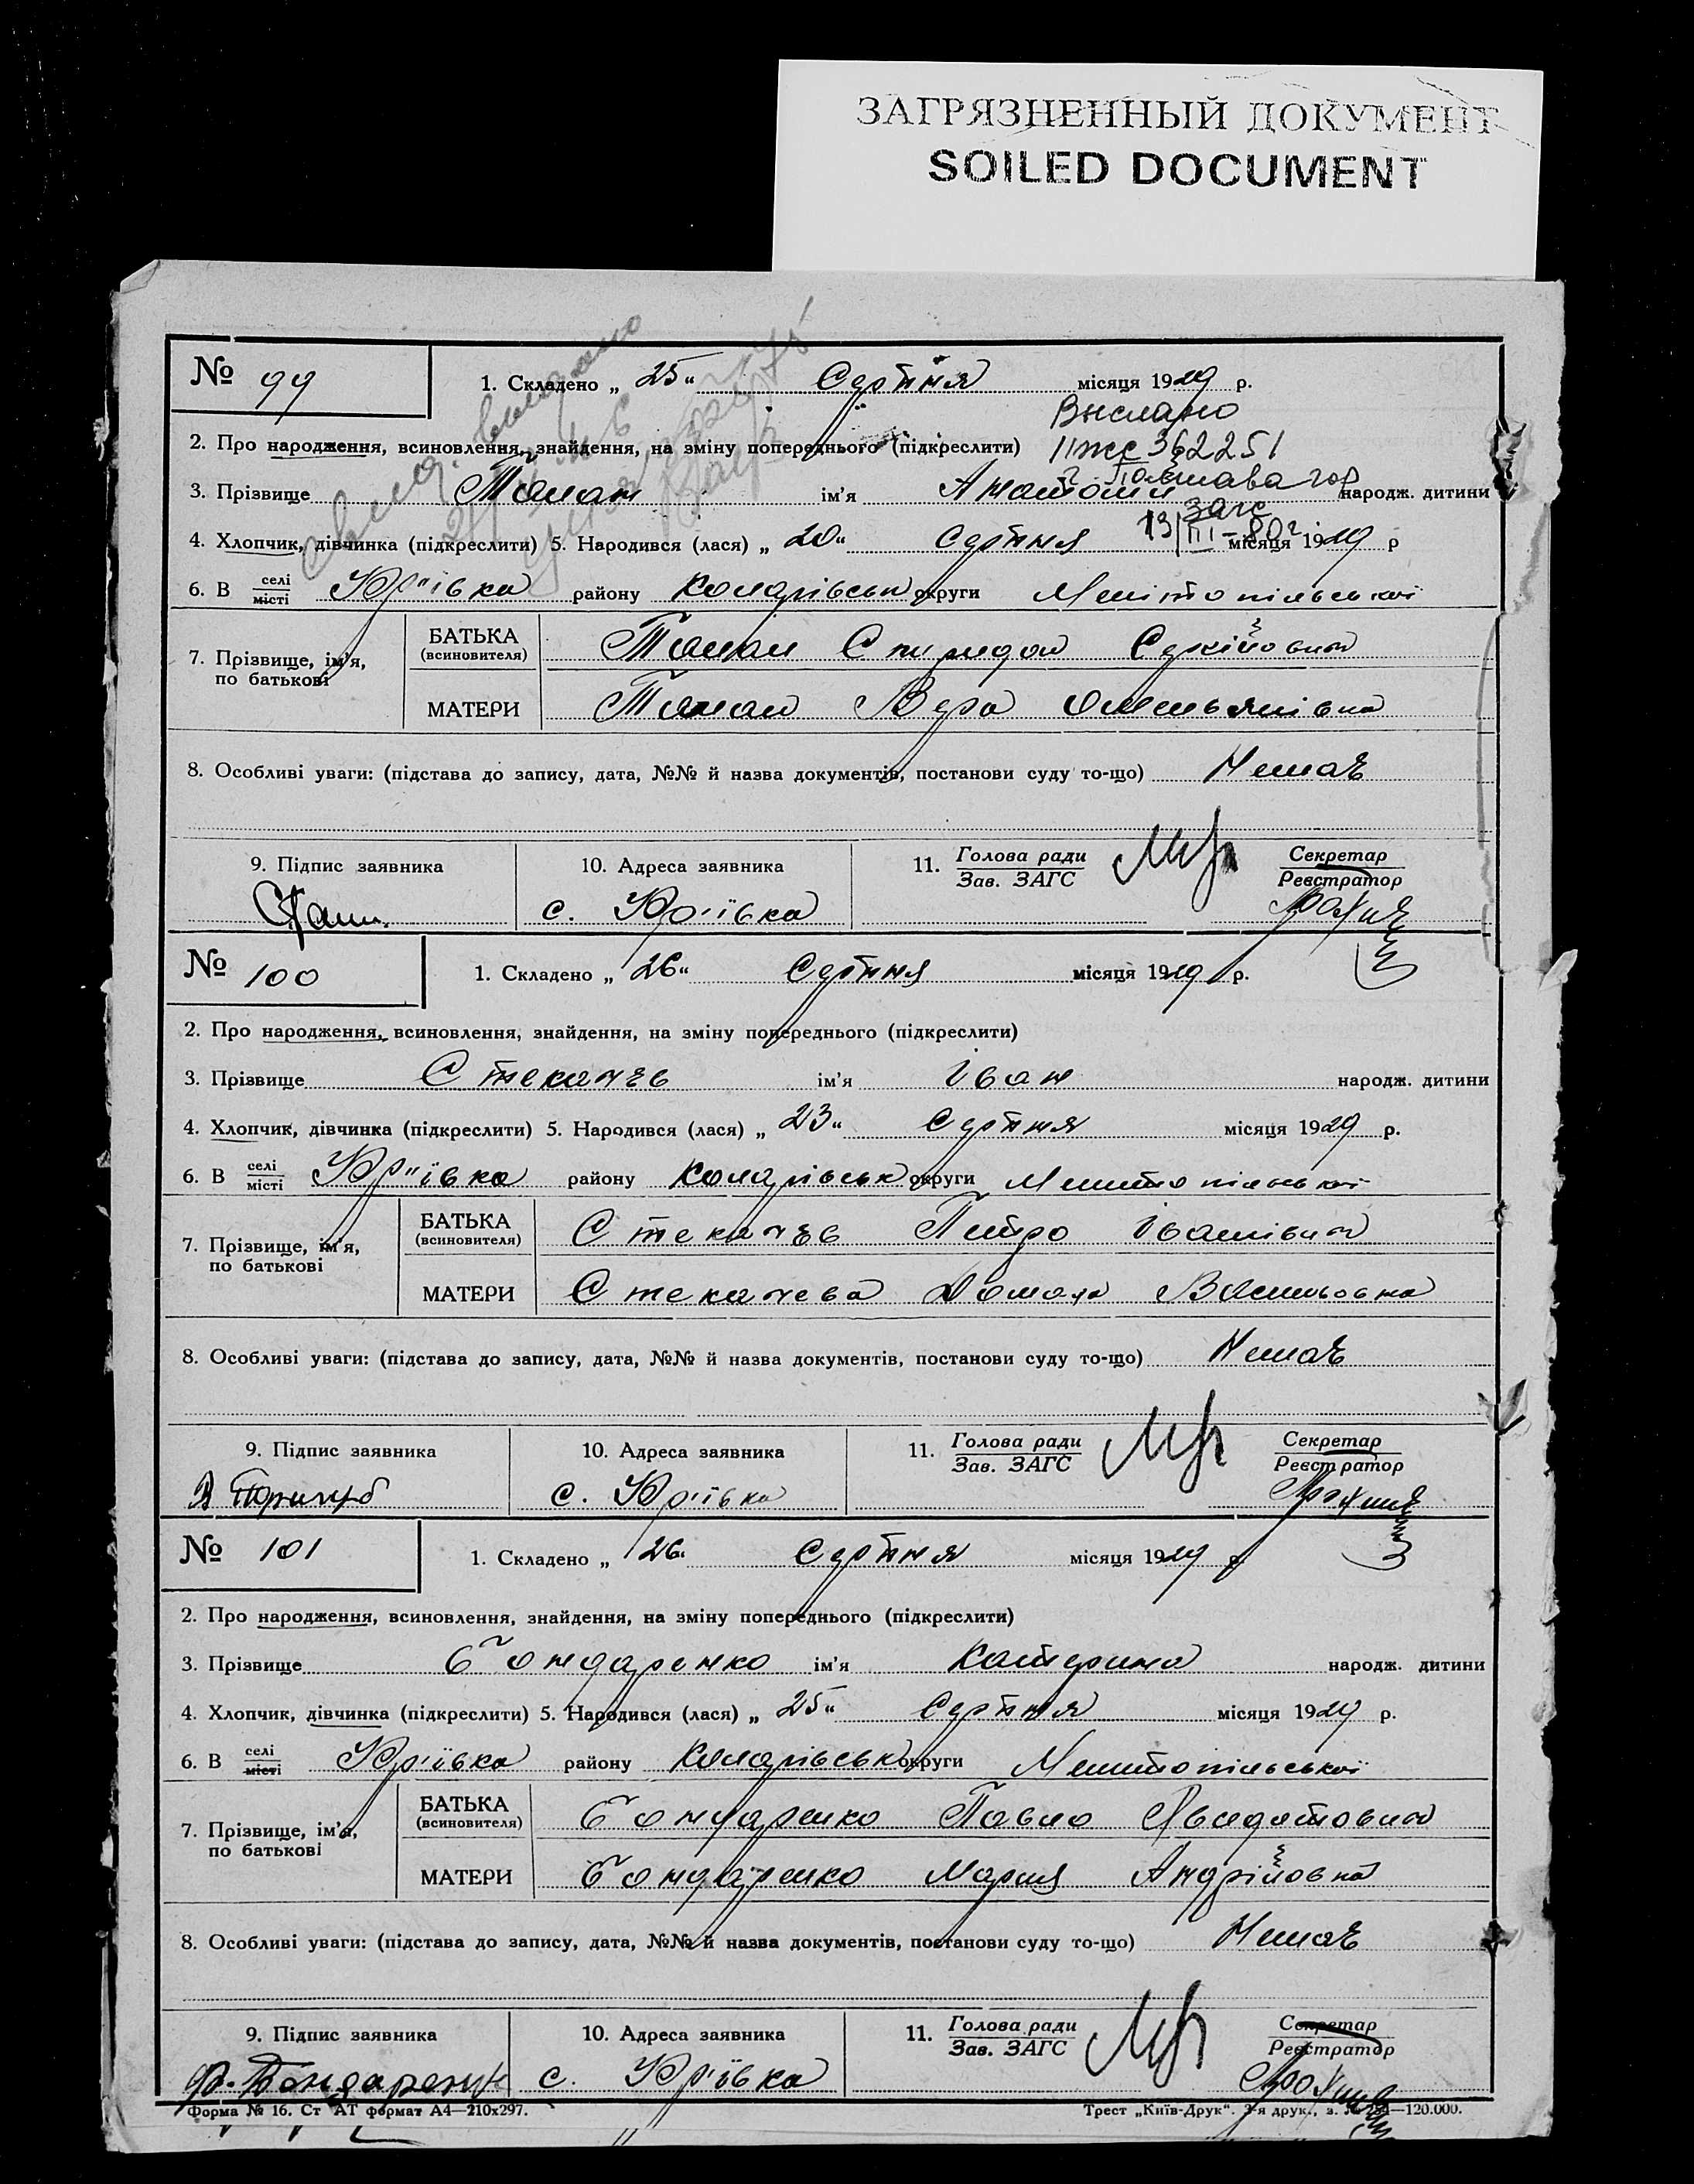 ЗАГРЯЗНЕННЫЙ ДОКУМЕНТ
SOILED DOCUMENT
№ 99
1. Складено „ 25 “ Серпня місяця 1929 р.
Выслано
IIжс 362251
2. Про народження, всиновлення, знайдення, на зміну попереднього (підкреслити)
г Полтава гор
загс
13/III-80г
3. Прізвище ім'я народж. дитини
4. Хлопчик, дівчинка (підкреслити) 5. Народився (лася) „ 20 “ Серпня місяця 1929 р
6. В селі місті Юр'ївка району Коларівськ округи Мелітопільської
7. Прізвище, ім'я, по батькові
БАТЬКА (всиновителя) Спиридон
МАТЕРИ Вера Омельянівна
8. Особливі уваги: (підстава до запису, дата, №№ й назва документів, постанови суду то-що) Немає
9. Підпис заявника
10. Адреса заявника
11. Голова ради Зав. ЗАГС
Секретар Реєстратор
с. Юр'ївка
№ 100
1. Складено „ 26 “ Серпня місяця 1929 р.
2. Про народження, всиновлення, знайдення, на зміну попереднього (підкреслити)
3. Прізвище Стекачев ім'я Іван народж. дитини
4. Хлопчик, дівчинка (підкреслити) 5. Народився (лася) „ 23 “ Серпня місяця 1929 р.
6. В селі місті Юр'ївка району Коларівськ округи Мелітопільської
7. Прізвище, ім'я, по батькові
БАТЬКА (всиновителя) Стекачев Петро Іванівич
МАТЕРИ Стекачева Васильовна
8. Особливі уваги: (підстава до запису, дата, №№ й назва документів, постанови суду то-що) Немає
9. Підпис заявника
10. Адреса заявника
11. Голова ради Зав. ЗАГС
Секретар Реєстратор
с. Юр'ївка
№ 101
1. Складено „ 26 “ Серпня місяця 1929 р.
2. Про народження, всиновлення, знайдення, на зміну попереднього (підкреслити)
3. Прізвище Бондаренко ім'я Катерина народж. дитини
4. Хлопчик, дівчинка (підкреслити) 5. Народився (лася) „ 25 “ Серпня місяця 1929 р.
6. В селі місті Юр'ївка району Коларівськ округи Мелітопільської
7. Прізвище, ім'я, по батькові
БАТЬКА (всиновителя) Бондаренко Павло
МАТЕРИ Бондаренко Мария Андрійовна
8. Особливі уваги: (підстава до запису, дата, №№ й назва документів, постанови суду то-що) Немає
9. Підпис заявника
10. Адреса заявника
11. Голова ради Зав. ЗАГС
Секретар Реєстратор
с. Юр'ївка
Форма № 16. Ст АТ формат А4—210х297.
Трест „Київ-Друк“. 3-я друк., з. —120.000.